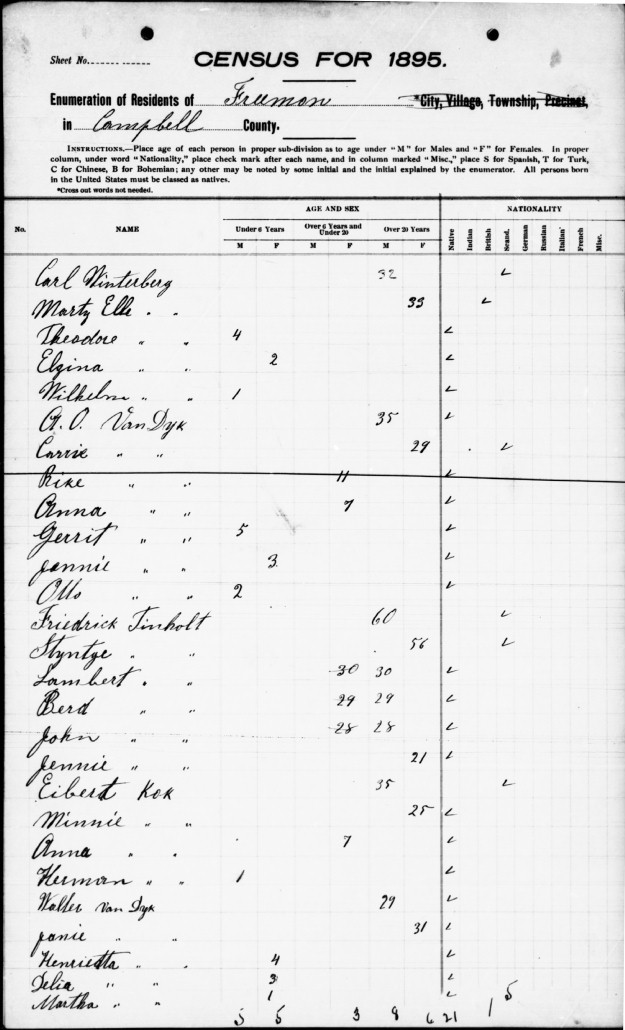 Sheet No.
CENSUS FOR 1895.
Enumeration of Residents of Freemon *City, Village, Township, Precinct,
in Campbell County.
INSTRUCTIONS.—Place age of each person in proper sub-division as to age under "M" for Males and "F" for Females. In proper
column, under word "Nationality," place check mark after each name, and in column marked "Misc.," place S for Spanish, T for Turk,
C for Chinese, B for Bohemian; any other may be noted by some initial and the initial explained by the enumerator. All persons born
in the United States must be classed as natives.
*Cross out words not needed.
No. NAME AGE AND SEX NATIONALITY
Under 6 Years Over 6 Years and Under 20 Over 20 Years
M F M F M F Native Indian British Scand. German Russian Italian French Misc.
Carl Winterberg 32 ✓
Marty Elle " " 33 ✓
Theodore " " 4 ✓
Elgina " " 2 ✓
Wilhelm " " 1 ✓
A. O. Van Dyk 35 ✓
Carrie " " 29 ✓
Rike " " 11 ✓
Anna " " 7 ✓
Gerrit " " 5 ✓
Jannie " " 3 ✓
Otto " " 2 ✓
Friedrick Tinholt 60 ✓
Styntye " " 56 ✓
Lambert " " 30 30 ✓
Berd " " 29 29 ✓
John " " 28 28 ✓
Jennie " " 21 ✓
Eibert Kok 35 ✓
Minnie " " 25 ✓
Anna " " 7 ✓
Herman " " 1 ✓
Walter Van Dyk 29 ✓
Janie " " 31 ✓
Henrietta " " 4 ✓
Delia " " 3 ✓
Martha " " 1 ✓
5 5 3 8 6 21 1 5